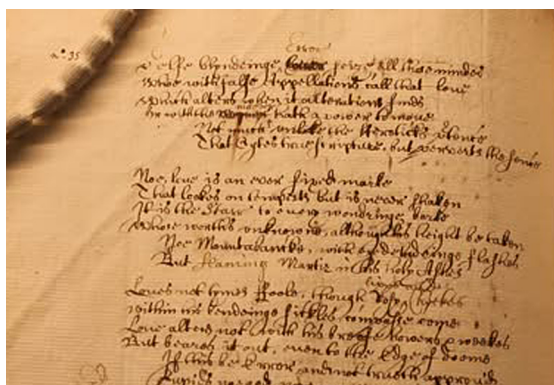 n°. 35
Error
Selfe blyndeinge Error seaze all those mindes
Whoe with false Appellations call that love
Which alters when it alterations finds
Or with the mover hath a power to move
Not much unlike the Hereticks p'tence
That Cytes true scripture, but perverts the sence
Noe, love is an ever fixed marke
That lookes on tempests but is never shaken
It is the Starr to every wanderinge barke
Whose worth's unknowne, although his height be taken
Noe Mountebancke, with eye deludeinge flashes
But flameing Martir in his holy Ashes
Love's not tymes foole, though Rosy cheekes
Within his bendeinge sickles compasse come
Love alters not with his breife howers & weekes
But beares it out, even to the Edge of doome
If this be Error and not trueth approv'd